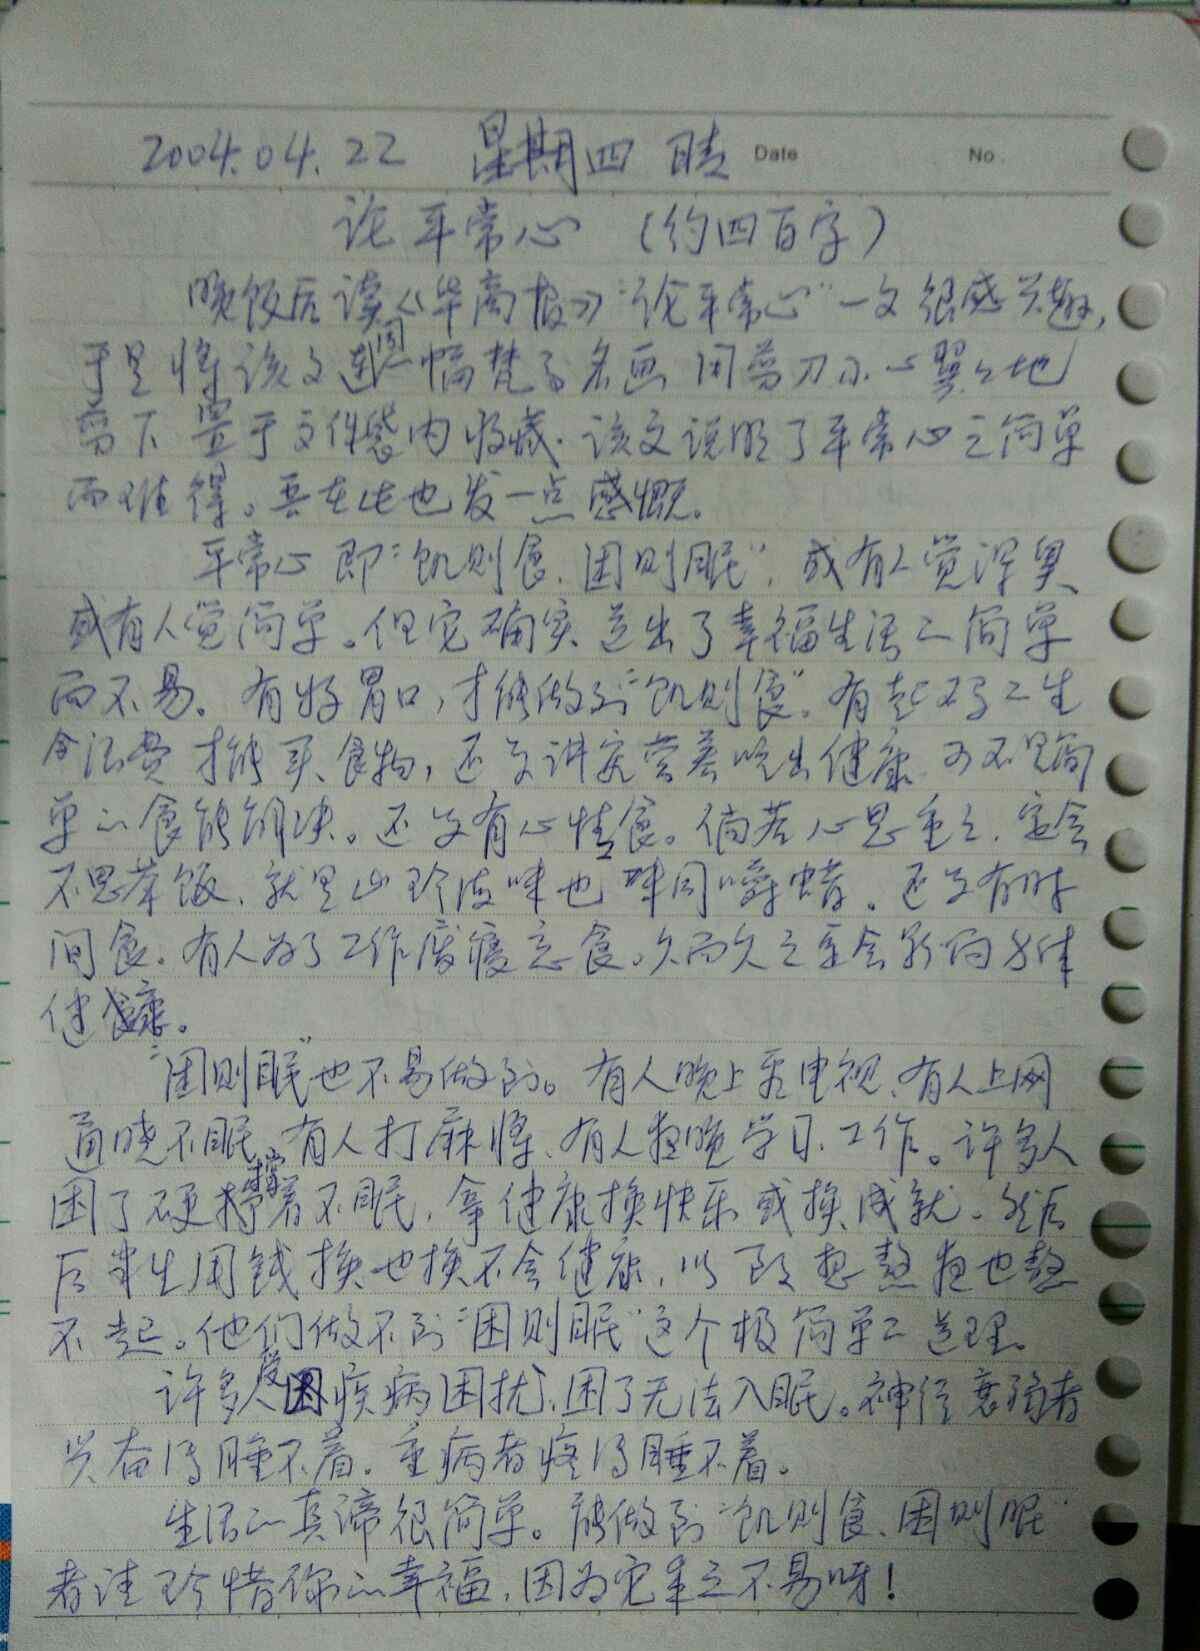 2004.04.22 星期四 晴 Date No.
论平常心 (约四百字)
晚饭后读《华商报》“论平常心”一文很感兴趣,
于是将该文连同一幅梵高名画用剪刀小心翼翼地
剪下置于文件袋内收藏.该文说明了平常心之简单
而难得。吾在此也发一点感慨.
平常心即“饥则食、困则眠”,或有人觉深奥、
或有人觉简单。但它确实道出了幸福生活之简单
而不易。有好胃口,才能做到“饥则食”。有起码之生
活费才能买食物,还要讲究营养吃出健康、可不是简
单的食能解决。还要有心情食。倘若心思重重、定会
不思茶饭、就是山珍海味也味同嚼蜡。还要有时
间食。有人为了工作废寝忘食。久而久之至会影响身体
健康。
“困则眠”也不易做到。有人晚上看电视、有人上网
通晓不眠、有人打麻将、有人夜晚学习、工作。许多人
困了硬撑着不眠,拿健康换快乐或换成就。然后
后半生用钱换也换不会健康,以致想熬夜也熬
不起。他们做不到“困则眠”这个极简单之道理。
许多人受疾病困扰、困了无法入眠。神经衰弱者
兴奋得睡不着。重病者疼得睡不着。
生活的真谛很简单。能做到“饥则食、困则眠”
者请珍惜你的幸福,因为它来之不易呀!